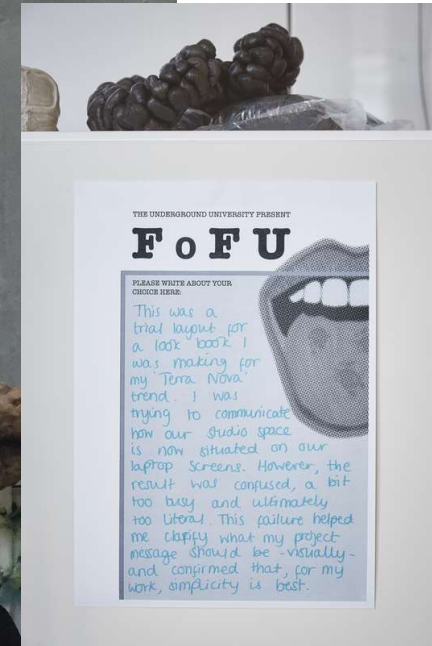 THE UNDERGROUND UNIVERSITY PRESENT
FoFU
PLEASE WRITE ABOUT YOUR
CHOICE HERE:
This was a
trial layout for
a look book I
was making for
my 'Terra Nova'
trend. I was
trying to communicate
how our studio space
is now situated on our
laptop screens. However, the
result was confused, a bit
too busy and ultimately
too literal. This failure helped
me clarify what my project
message should be -visually-
and confirmed that, for my
work, simplicity is best.